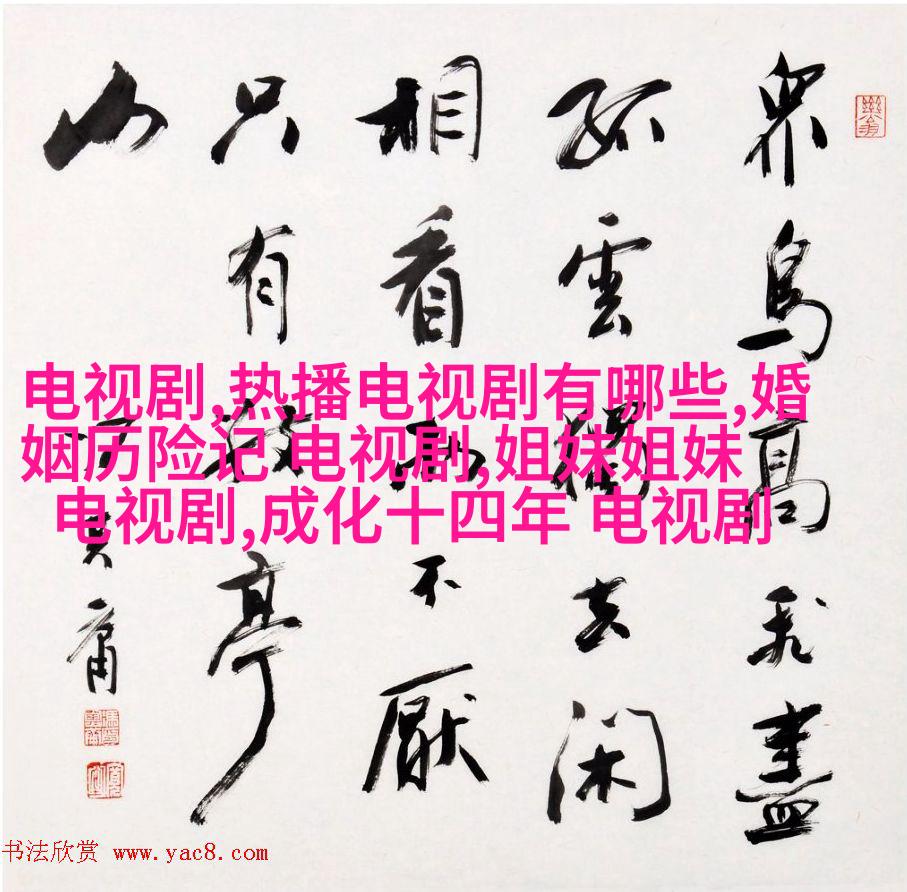 衆鳥高飛盡
孤雲獨去閑
相看兩不厭
只有敬亭
山
其庸
电视剧,热播电视剧有哪些,婚
姻历险记 电视剧,姐妹姐妹
电视剧,成化十四年 电视剧
书法欣赏 www.yac8.com